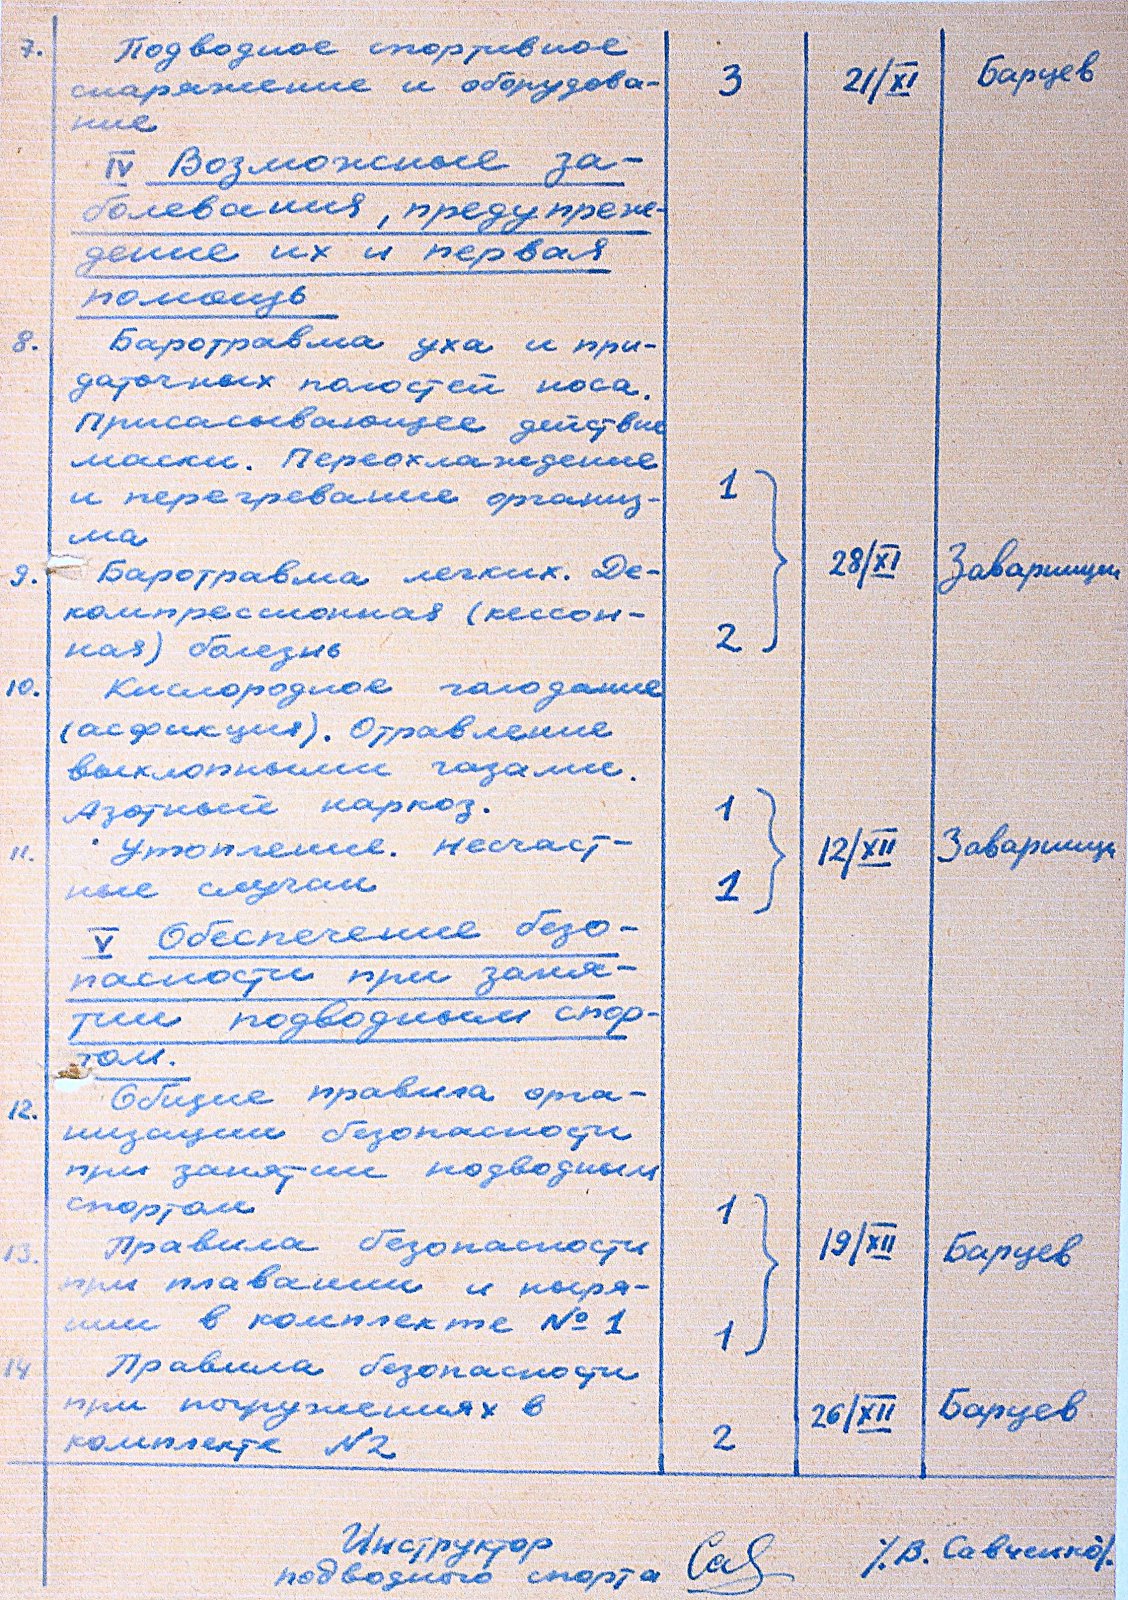 7. Подводное спортивное
снаряжение и оборудова- 3 21/XI Барцев
ние
IV Возможные за-
болевания, предупреж-
дение их и первая
помощь
8. Баротравма уха и при-
даточных полостей носа.
Присасывающее действие
маски. Переохлаждение
и перегревание организ- 1
ма
9. Баротравма легких. Де- 28/XI Заварицин
компрессионная (кессон-
ная) болезнь 2
10. Кислородное голодание
(асфикция). Отравление
выхлопными газами.
Азотный наркоз. 1
11. Утопление. Несчаст- 12/XII
ные случаи 1
V Обеспечение безо-
пасности при заня-
тии подводным спор-
том.
12. Общие правила орга-
низации безопасности
при занятии подводным
спортом 1
13. Правила безопасности 19/XII Барцев
при плавании и ныря-
нии в комплекте №1 1
14 Правила безопасности
при погружениях в 26/XII Барцев
комплекте N2 2
Инструктор
подводного спорта /В. Савченко/.